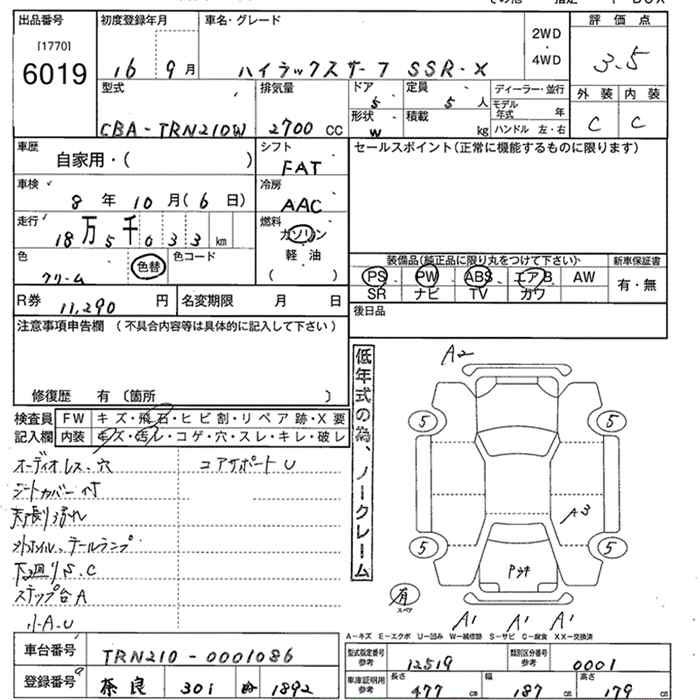 出品番号 初度登録年月 車名・グレード 2WD・4WD 評価点
[1770] 6019 16 9月 ハイラックスサーフ SSR・X 3.5
型式 排気量 ドア 5 定員 5人 ディーラー・並行 外装 内装
CBA-TRN210W 2700 CC 形状 W 積載 kg モデル年式 年 ハンドル 左・右 C C
車歴 自家用・( ) シフト FAT セールスポイント(正常に機能するものに限ります)
車検 8年 10月(6日) 冷房 AAC
走行 18万5千033km 燃料 ガソリン
軽油
( )
色 クリーム 色替 色コード
装備品(純正品に限り丸をつけて下さい) 新車保証書
PS PW ABS エアB AW 有・無
SR ナビ TV カワ
R券 11,290 円 名変期限 月 日 後日品
注意事項申告欄 (不具合内容等は具体的に記入して下さい)
修復歴 有〔箇所 〕
検査員 FW キズ・飛石・ヒビ割・リペア跡・X要
記入欄 内装 キズ・汚レ・コゲ・穴・スレ・キレ・破レ
オーディオレス・穴 コアサポートU
シートカバー付
天張り汚れ
テールランプ
下廻りS.C
ステップ台A
小A・U
低年式の為、ノークレーム
A2
5 5
A3
5 5
有
スペア
A1 A1 A1
A-キズ E-エクボ U-凹み W-補修跡 S-サビ C-腐食 XX-交換済
車台番号 TRN210-0001086
登録番号 奈良 301 ぬ 1892
型式指定番号 参考 12519 類別区分番号 参考 0001
車庫証明用 参考 長さ 477 cm 幅 187 cm 高さ 179 cm